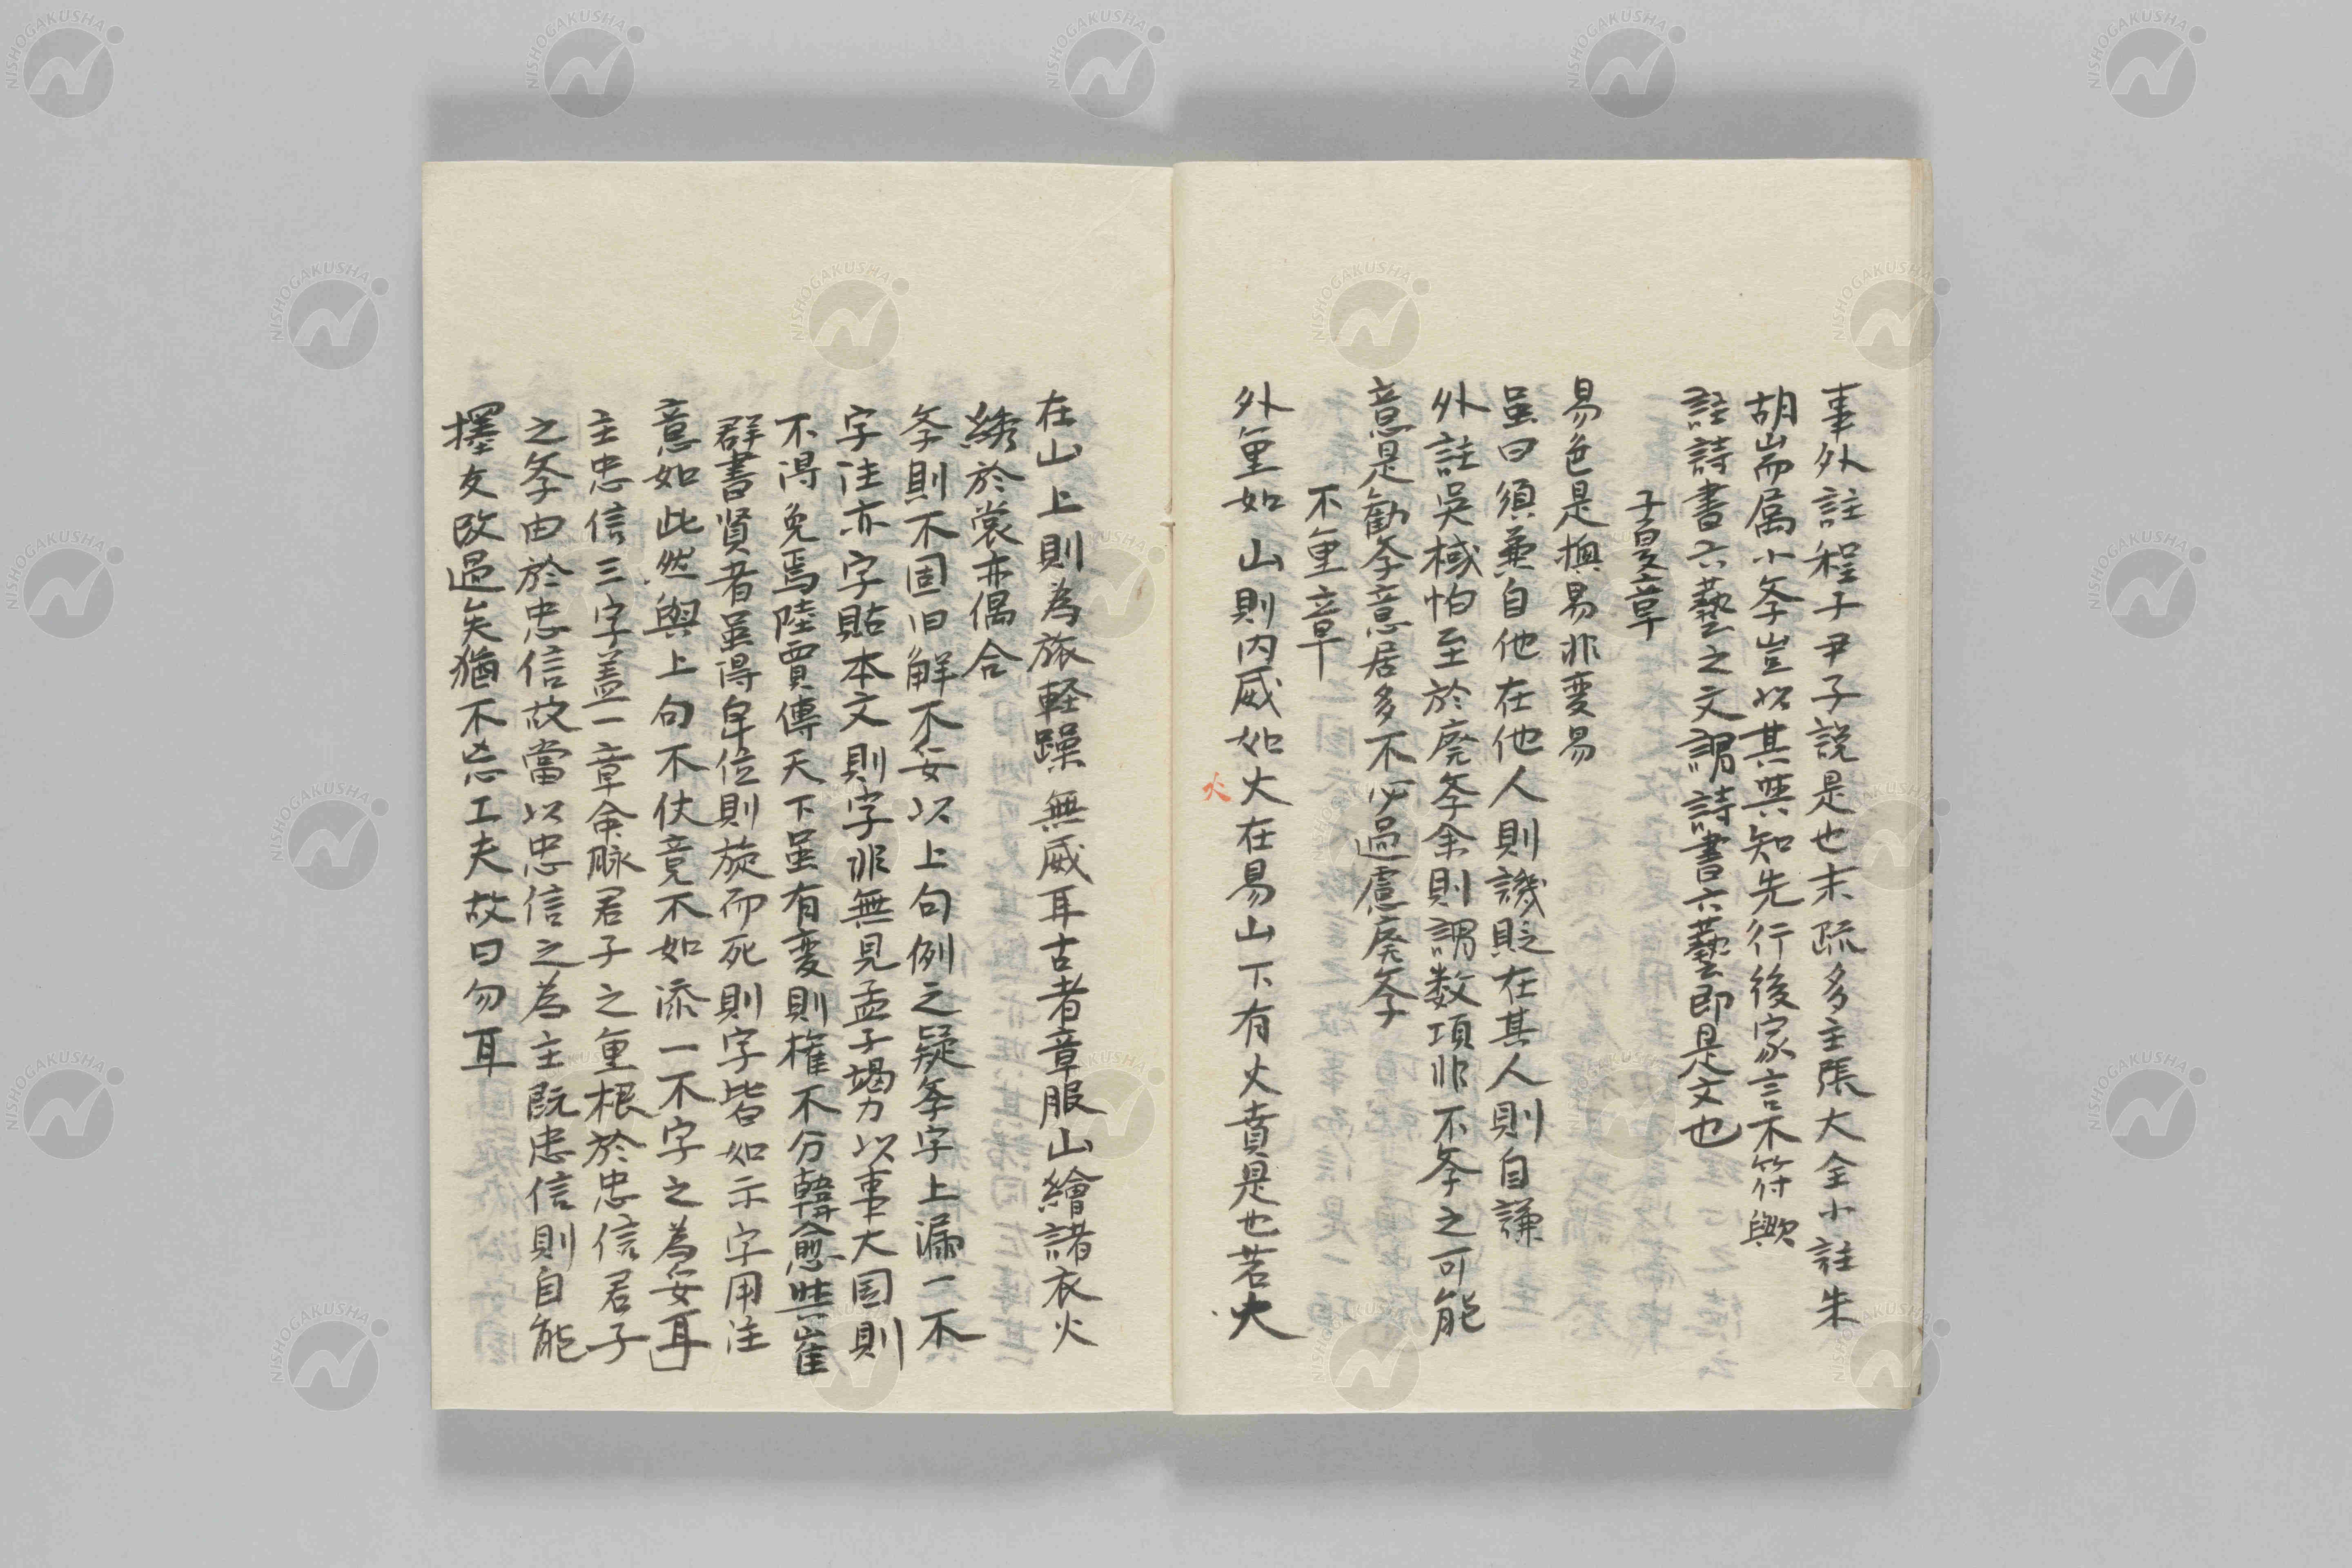 事外註程子尹子説是也末疏多主張大全小註朱
胡耑属小斈豈以其無知先行後家言不符歟
註詩書六藝之文謂詩書六藝即是文也
子夏章
易色是換易非変易
虽曰須兼自他在他人則譏貶在其人則自謙
外註吳棫怕至於廃斈余則謂数項非不斈之可能
意是勧斈意居多不必過慮廃斈
不重章
外重如山則内威如火在易山下有火賁是也若火
火
在山上則為旅軽躁無威耳古者章服山繪諸衣火
綉於裳亦偶合
斈則不固旧解不妥以上句例之疑斈字上漏一不
字注亦字貼本文則字非無見孟子竭力以事大国則
不得免焉陸賈傳天下虽有変則権不分韓愈與崔
群書賢者虽得卑位則旋而死則字皆如示字用注
意如此然與上句不伏竟不如添一不字之為妥耳」
主忠信三字盖一章命脉君子之重根於忠信君子
之斈由於忠信故當以忠信之為主既忠信則自能
擇友改過矣猶不忘工夫故曰勿耳
NISHOGAKUSHA